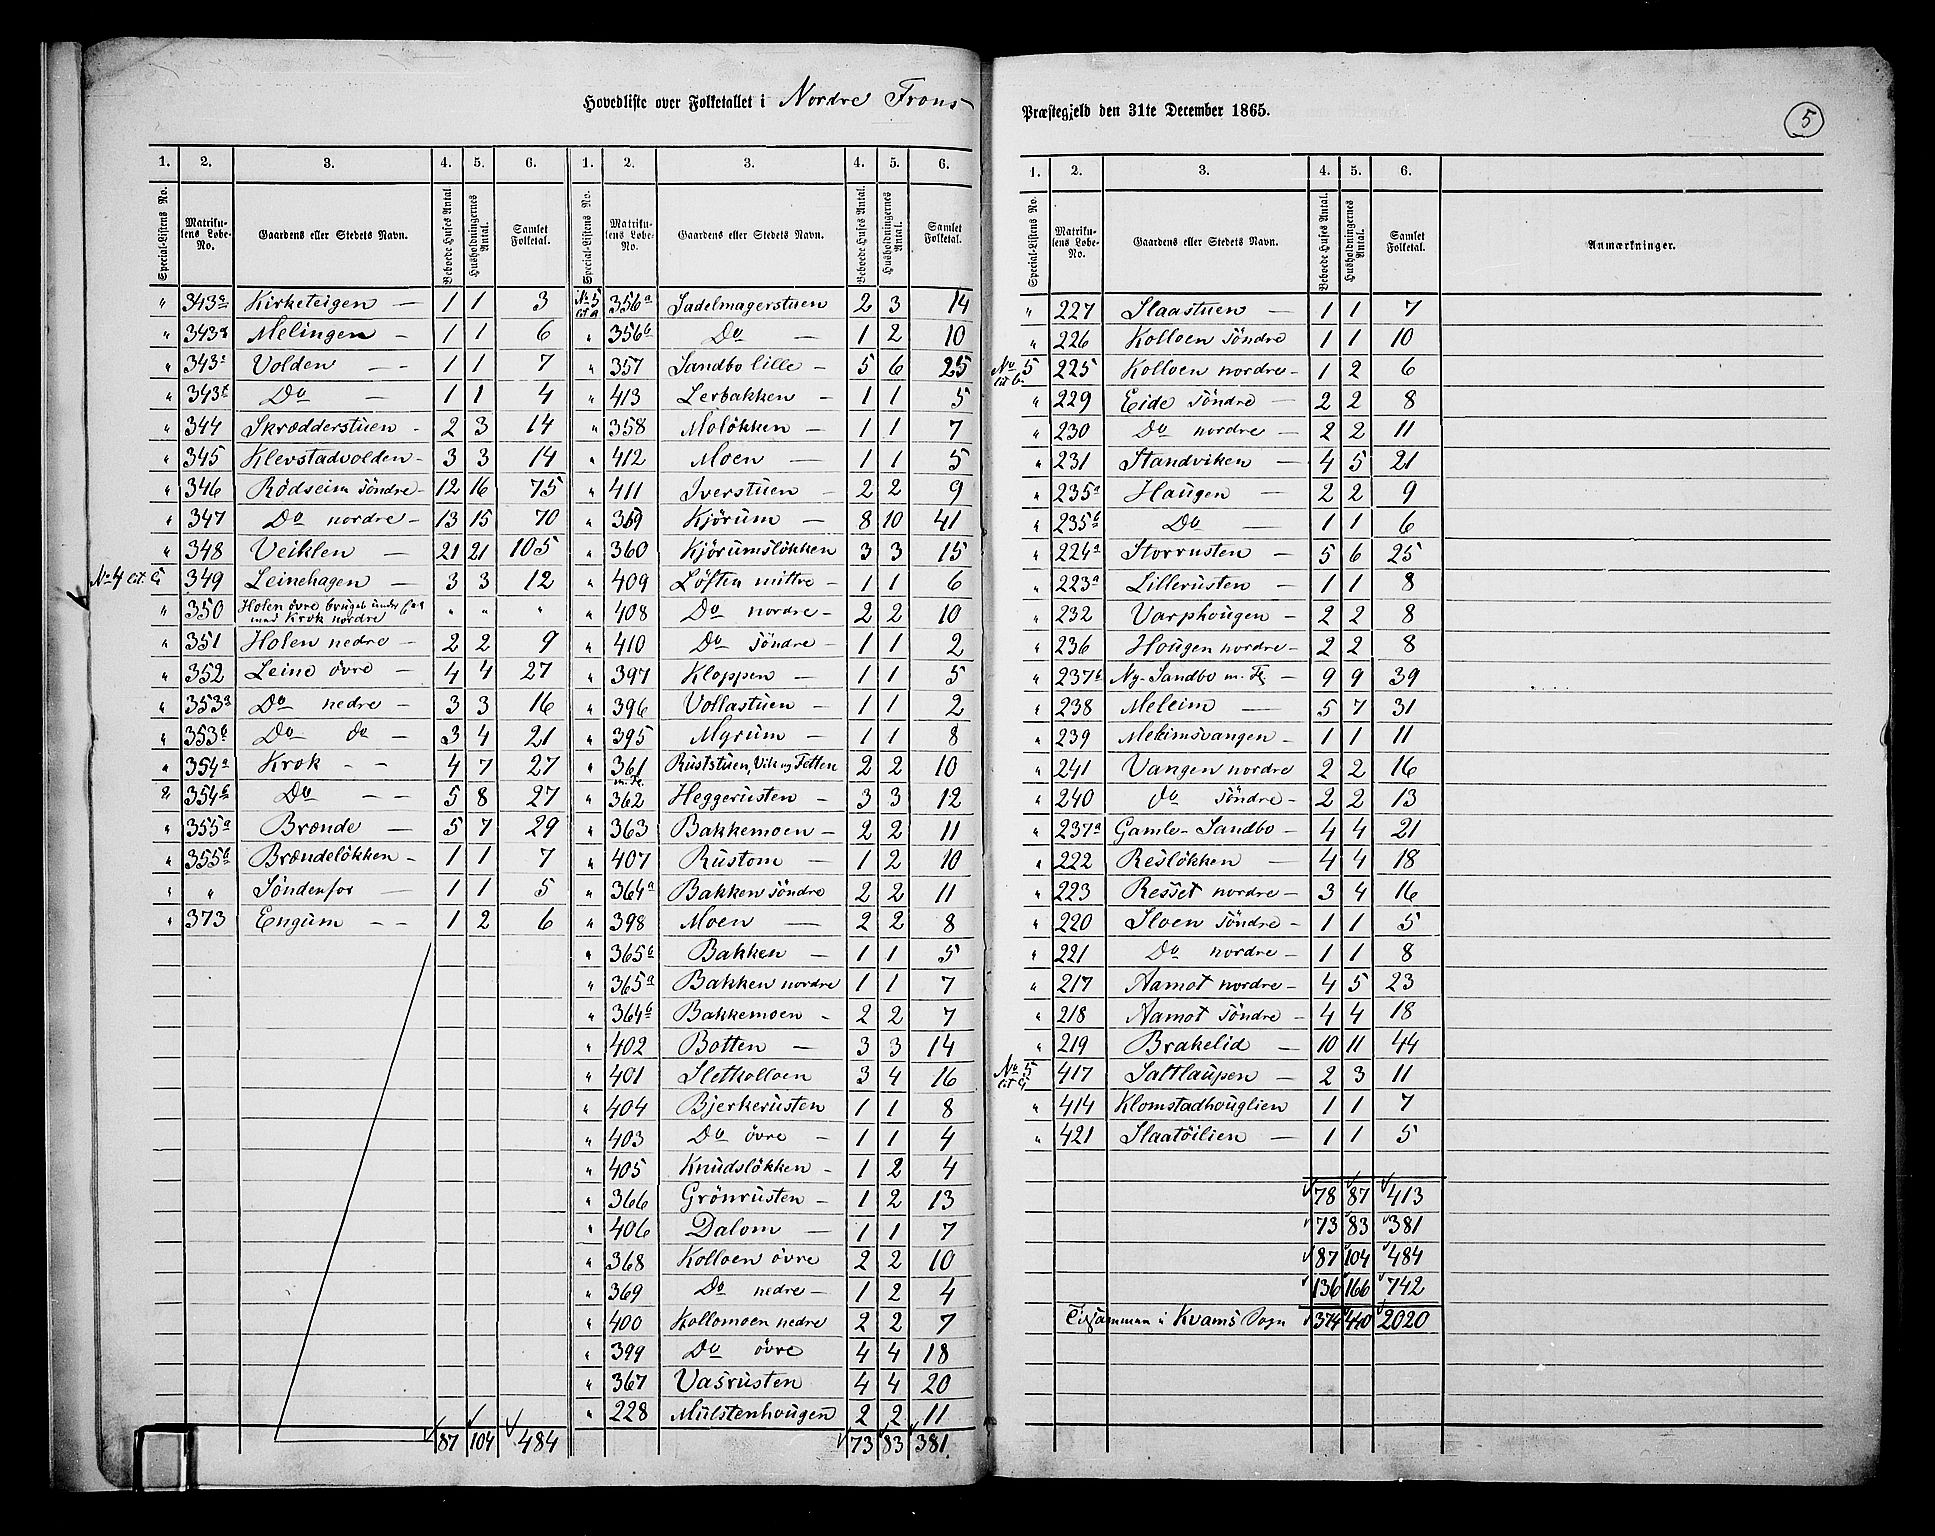 Hovedliste over Folketallet i Nordre Frons
Præstegjeld den 31te December 1865.
5
1. 2. 3. 4. 5. 6. 1. 2. 3. 4. 5. 6.
Special-Listens No. Matrikulens Løbe-No. Gaardens eller Stedets Navn. Beboede Huses Antal Husholdningernes Antal. Samlet Folketal. Special-Listens No. Matrikulens Løbe-No. Gaardens eller Stedets Navn. Beboede Huses Antal. Husholdningernes Antal. Samlet Folketal.
" 343 Kirketeigen — 1 1 3
" 343 Melingen — 1 1 6
" 343 Volden — — 1 1 7
" 343 Do — 1 1 4
" 344 Skrædderstuen - 2 3 14
" 345 Klevstadvolden - 3 3 14
" 346 Rödseim söndre - 12 16 75
" 347 Do nordre - 13 15 70
" 348 Veiklen — 21 21 105
No 4 Lit. 349 Leinehagen — 3 3 12
" 350 Holen övre bruges under med Krok nordre " " "
" 351 Holen nedre - 2 2 9
" 352 Leine övre - 4 4 27
" 353a Do nedre - 3 3 16
" 353b Do do - 3 4 21
" 354a Krok - - 4 7 27
" 354b Do - - 5 8 27
" 355a Brænde — 5 7 29
" 355b Brændelökken - 1 1 7
" " Söndenfor — 1 1 5
" 373 Engum — — 1 2 6
87 104 484
No 5 Lit a 356a Sadelmagerstuen 2 3 14
" 356b Do — 1 2 10
" 357 Sandbo lille - 5 6 25
" 413 Lerbakken - 1 1 5
" 358 Molökken - 1 1 7
" 412 Moen — 1 1 5
" 411 Iverstuen - 2 2 9
" 359 Kjörum — 8 10 41
" 360 Kjörumslökken 3 3 15
" 409 Löften mittre - 1 1 6
" 408 Do nordre - 2 2 10
" 410 Do söndre - 1 1 2
" 397 Kloppen — 1 1 5
" 396 Vollastuen - 1 1 2
" 395 Myrum — 1 1 8
" 361 m. Fl. Ruststuen, Vik og Tetten 2 2 10
" 362 Heggerusten - 3 3 12
" 363 Bakkemoen - 2 2 11
" 407 Rustom — 1 2 10
" 364a Bakken söndre 2 2 11
" 398 Moen — 2 2 8
" 365b Bakken — 1 1 5
" 365a Bakken nordre 1 1 7
" 364b Bakkemoen - 2 2 7
" 402 Botten — 3 3 14
" 401 Sletkolloen 3 4 16
" 404 Bjerkerusten 1 1 8
" 403 Do övre - 1 1 4
" 405 Knudslökken - 1 2 4
" 366 Grönrusten - 1 2 13
" 406 Dalom — 1 1 7
" 368 Kolloen övre 2 2 10
" 369 Do nedre - 1 2 4
" 400 Kollomoen nedre 2 2 7
" 399 Do övre 4 4 18
" 367 Vasrusten 4 4 20
" 228 Mulstenhougen 2 2 11
73 83 381
1. 2. 3. 4. 5. 6.
Special-Listens No. Matrikulens Løbe-No. Gaardens eller Stedets Navn. Beboede Huses Antal. Husholdningernes Antal. Samlet Folketal. Anmærkninger.
" 227 Slaastuen — 1 1 7
" 226 Kolloen söndre 1 1 10
No 5 Lit b. 225 Kolloen nordre - 1 2 6
" 229 Eide söndre — 2 2 8
" 230 Do nordre - 2 2 11
" 231 Standviken — 4 5 21
" 235a Haugen — 2 2 9
" 235b Do — 1 1 6
" 224a Storrusten - 5 6 25
" 223a Lillerusten - 1 1 8
" 232 Varphougen - 2 2 8
" 236 Hougen nordre - 2 2 8
" 237b Ny-Sandbo m. Fl. - 9 9 39
" 238 Meleim — 5 7 31
" 239 Meleimsvangen - 1 1 11
" 241 Vangen nordre 2 2 16
" 240 do söndre - 2 2 13
" 237a Gamle-Sandbo - 4 4 21
" 222 Reslökken — 4 4 18
" 223 Resset nordre - 3 4 16
" 220 Sloen söndre - 1 1 5
" 221 Do nordre - 1 1 8
" 217 Aamot nordre - 4 5 23
" 218 Aamot söndre - 4 4 18
" 219 Brakelid — 10 11 44
No 5 Lit 417 Saltlaupen — 2 3 11
" 414 Klomstadhouglien 1 1 7
" 421 Slaatölien — 1 1 5
78 87 413
73 83 381
87 104 484
136 166 742
Tilsammen i Kvams Sogn 374 440 2020